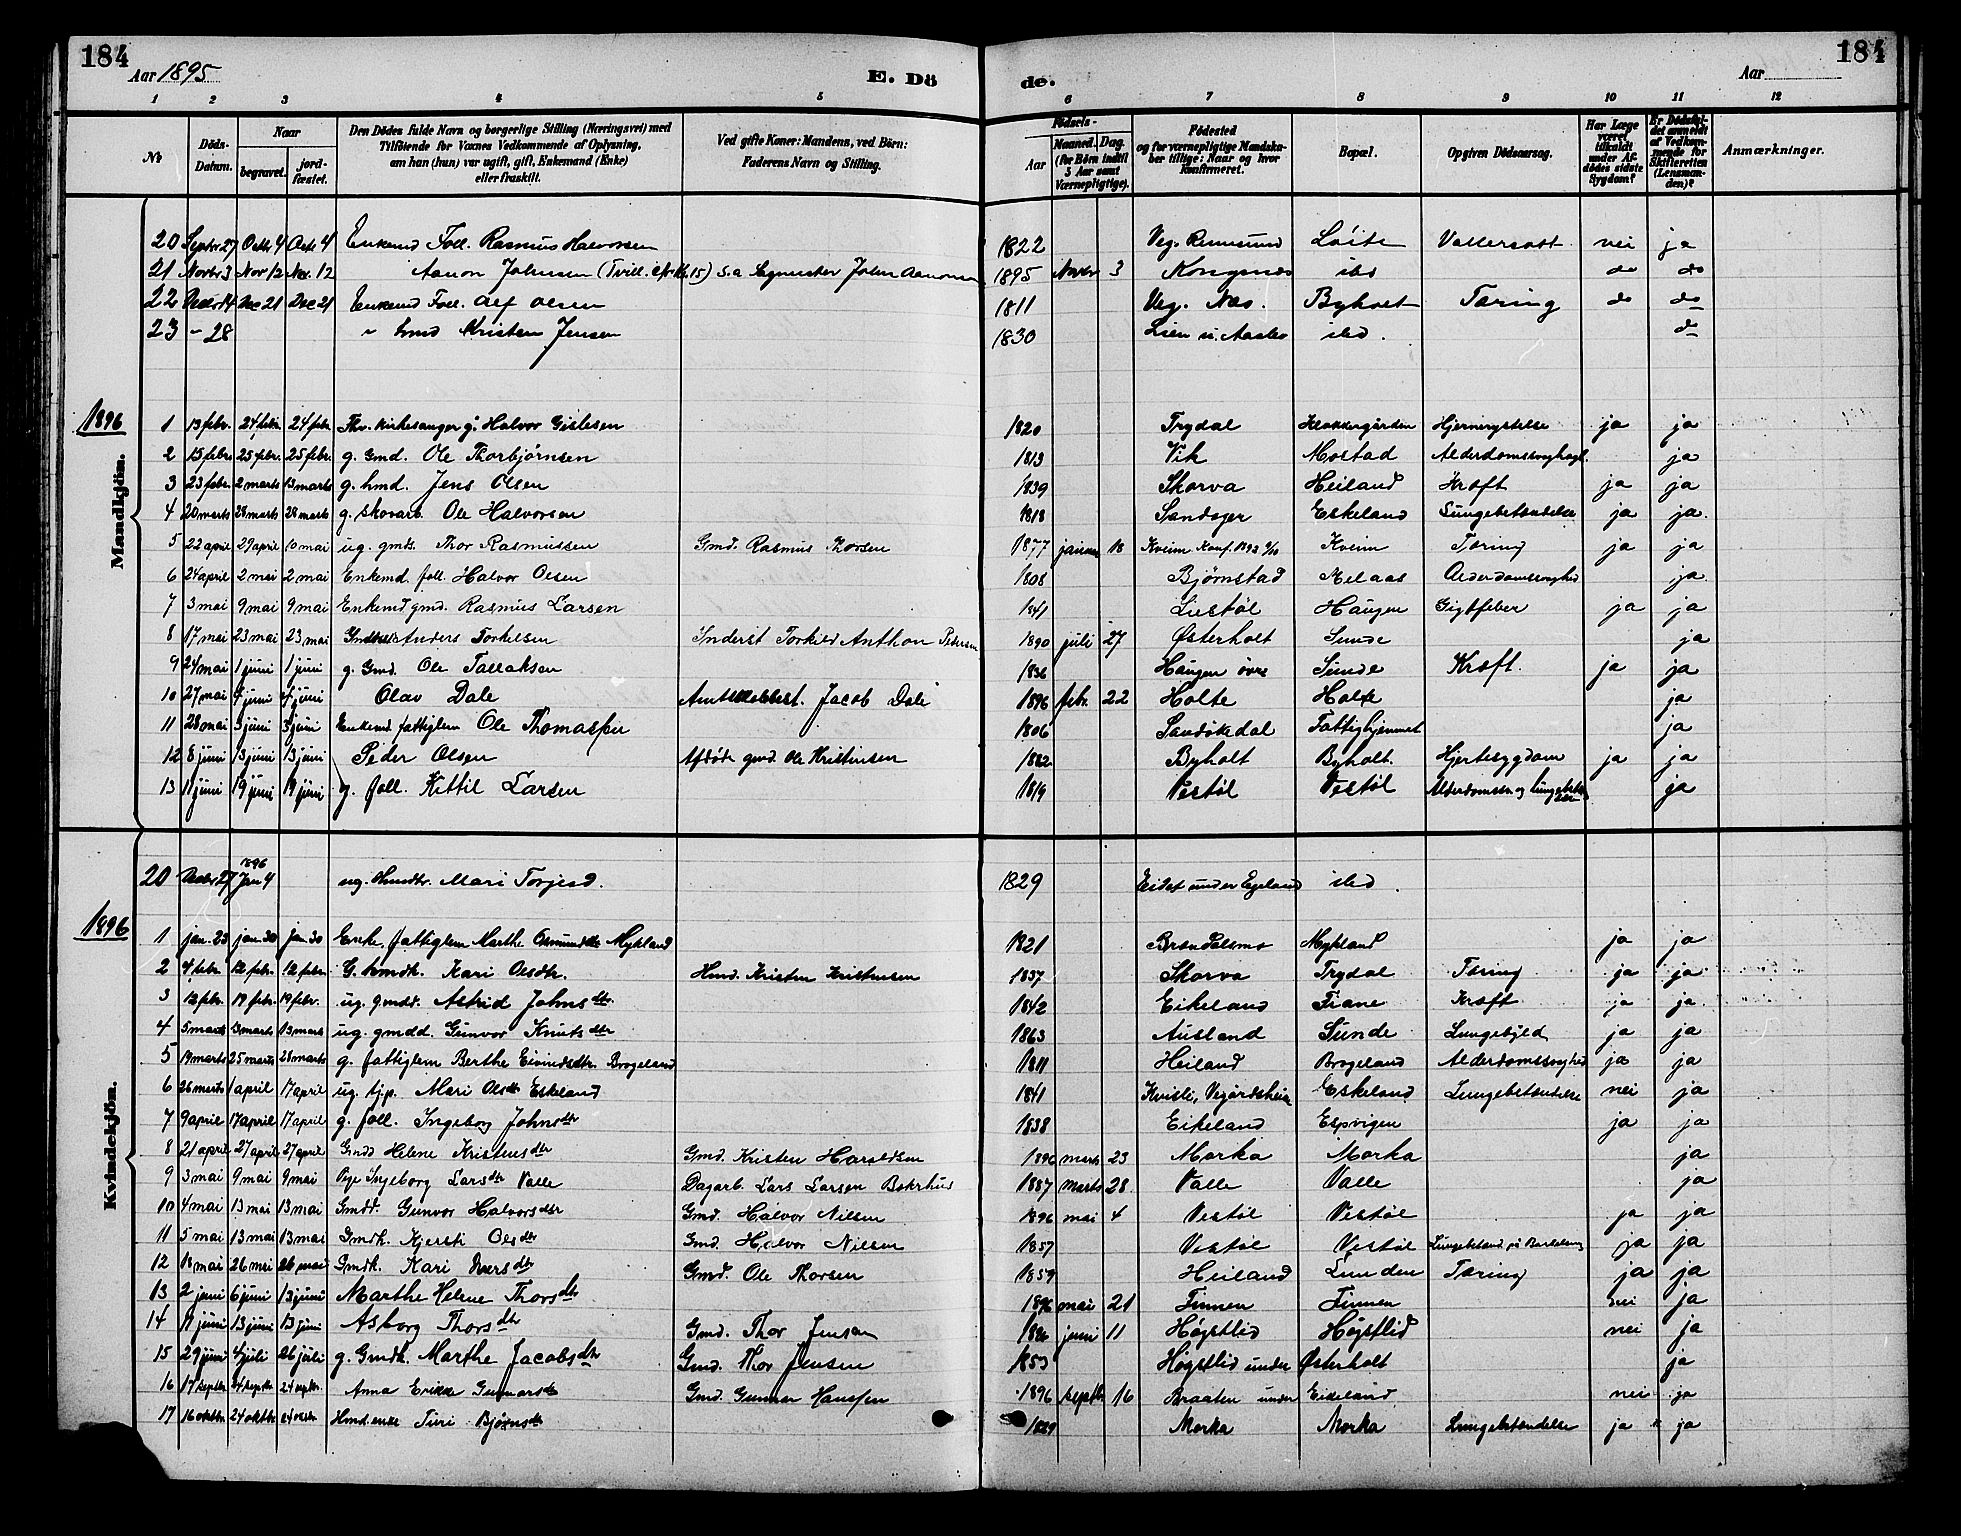 184
184
Aar 1895
E. Dö
de.
Aar
1 2 3 4 5 6 7 8 9 10 11 12
No
Døds-Datum.
Naar
begravet.
jord-fæstet.
Den Dødes fulde Navn og borgerlige Stilling (Næringsvei) med
Tilføiende for Voxnes Vedkommende af Oplysning,
om han (hun) var ugift, gift, Enkemand (Enke)
eller fraskilt.
Ved gifte Koner: Mandens, ved Börn:
Faderens Navn og Stilling.
Födsels-
Aar
Maaned. Dag.
(for Börn indtil
3 Aar samt
Værnepligtige).
Födested
og for værnepligtige Mandska-
ber tillige: Naar og hvor
konfirmeret.
Bopæl.
Opgiven Dødsaarsag.
Har Læge
været
tilkaldt
under Af-
dødes sidste
Sygdom?
Er Dødsfal-
det anmeldt
af Vedkom-
mende for
Skifteretten
(Lensman-
den)?
Anmærkninger.
Mandkjön.
20 Septbr 27 Octbr 4 Octb 4 Enkemd Foll. Rasmus Halvorsen 1822 Veg. Løite nei ja
21 Novbr 3 Nov 12 Nov. 12 Aanon Johnsen (Tvill. 15) s.a John Aanonsen 1895 Novbr 3 Kongsnes ibd do do
22 Decbr 14 Dec 21 Dec 21 Enkemd Foll. Alf Olsen 1811 Veg. Næs. Byholt Tæring do do
23 - 28 " hmd Kristen Jensen 1830 Lien u. ibd. do
1896
1 13 febr. 24 febr. 24 febr. Fhv. Kirkesanger g. Halvor Gislesen 1820 Trydal Klokkergården Hjernerystelse ja ja
2 15 febr. 25 febr. 25 febr. g. Gmd. Ole Thorbjørnsen 1813 Vik Mostad ja
3 23 febr. 2 marts 13 marts g. hmd. Jens Olsen 1839 Skorva Heiland Kræft ja ja
4 20 marts 28 marts 28 marts g. skovarb. Ole Halvorsen 1818 Sandager Eskeland Lungebetændelse ja ja.
5 22 april 29 april 10 mai ug. gmds. Thor Rasmussen Gmd. Rasmus Thorsen 1877 januar 18 Kveim Konf. 1892 Kveim Tæring ja ja
6 24 april 2 mai 2 mai Enkemd. foll. Halvor Olsen 1808 Bjørnstad Melaas Alderdomssvaghed ja
7 3 mai 9 mai 9 mai Enkemd gmd. Rasmus Larsen 1841 Lustøl Haugen Gigtfeber ja ja
8 17 mai 23 mai 23 mai Anders Torkelsen Inderst Torkild Anthon Pedersen 1890 juli 27 Østerholt Sunde ja
9 24 mai 1 juni 1 juni g. Gmd. Ole Tallaksen 1836 Haugen øvre Sunde Kræft. ja ja
10 27 mai 4 juni 4 juni Olav Dale Jacob Dale 1896 febr. 22 Holte Holte ja
11 28 mai 3 juni 3 juni Enkemd fattiglem Ole Thomassen 1806 Sandøkedal Fattighjemmet ja
12 8 juni 13 juni 13 juni Peder Olsen Afdøde gmd. Ole Kristensen 1882 Byholt Byholt. Hjertesygdom ja ja
13 11 juni 19 juni 19 juni g. foll. Kittil Larsen 1819 Vestøl Vestøl ja
Kvindekjön.
20 Decbr 27 1896 Jan 4 ug. Mari Torjesd. 1829 Eidet under Egeland ibd.
1896
1 jan. 23 jan. 30 jan 30 Enke. fattiglem Marthe Osmundsdtr Mykland 1821 Mykland ja ja
2 4 febr. 12 febr. 12 febr. G. hmdk. Kari Olsdtr. Hmd. Kristen Kristensen 1837 Skorva Trydal Tæring ja ja
3 12 febr. 19 febr. 19 febr. ug. gmdd. Astrid Johnsdtr 1842 Eikeland Fiane Kræft ja ja
4 5 marts 13 marts 13 marts ug. gmdd. Gunvor Knutsdtr 1863 Ausland Sunde Lungebyld ja ja
5 19 marts 25 marts 28 marts g. fattiglem Berthe Eivindsdtr. Brogeland 1811 Heiland Brogeland Alderdomssvaghed ja ja
6 26 marts 1 april 17 april ug. tjp. Mari Olsdtr Eskeland 1841 Kvisli, Vegårdsheien Eskeland Lungebetændelse nei ja
7 9 april 17 april 17 april g. foll. Ingeborg Johnsdtr 1838 Eikeland Espvigen ja ja
8 21 april 27 april 27 april Gmdd Helene Kristensdtr Gmd. Kristen Haraldsen 1896 marts 23 Morka Morka ja
9 3 mai 9 mai 9 mai Pige Ingeborg Larsdtr Valle Dagarb. Lars Larsen 1887 marts 28 Valle Valle ja
10 4 mai 13 mai 13 mai Gmdd. Gunvor Halvorsdtr Gmd. Halvor Nilsen 1896 mai 4 Vestøl Vestøl ja ja
11 5 mai 13 mai 13 mai Gmdk. Kjersti Olsdtr Gmd. Halvor Nilsen 1857 Vestøl Vestøl ja ja
12 18 mai 26 mai 26 mai Gmdk. Kari Gmd. Ole Thorsen 1859 Heiland Lunden Tæring ja ja
13 2 juni 6 juni 13 juni Marthe Helene Thorsdtr 1896 mai 21 Finnen Finnen nei ja
14 11 juni 13 juni 13 juni Asborg Thorsdtr Gmd. Thor Jensen 1896 juni 11 Høgstlid Høgstlid nei ja
15 29 juni 4 juli 26 juli g. Gmdk. Marthe Jacobsdtr Gmd. Thor Jensen 1853 Høgstlid under Østerholt ja
16 17 septbr. 24 septbr. 24 septbr. Anna Erikke Gunnarsdtr Gmd. Gunnar Hanssen 1896 septbr 16 Braaten under Eikeland nei ja
17 16 oktbr. 24 oktbr 24 oktbr Hmd. enke Turi Bjørnsdtr 1829 Morka Morka Lungebetændelse ja " ja